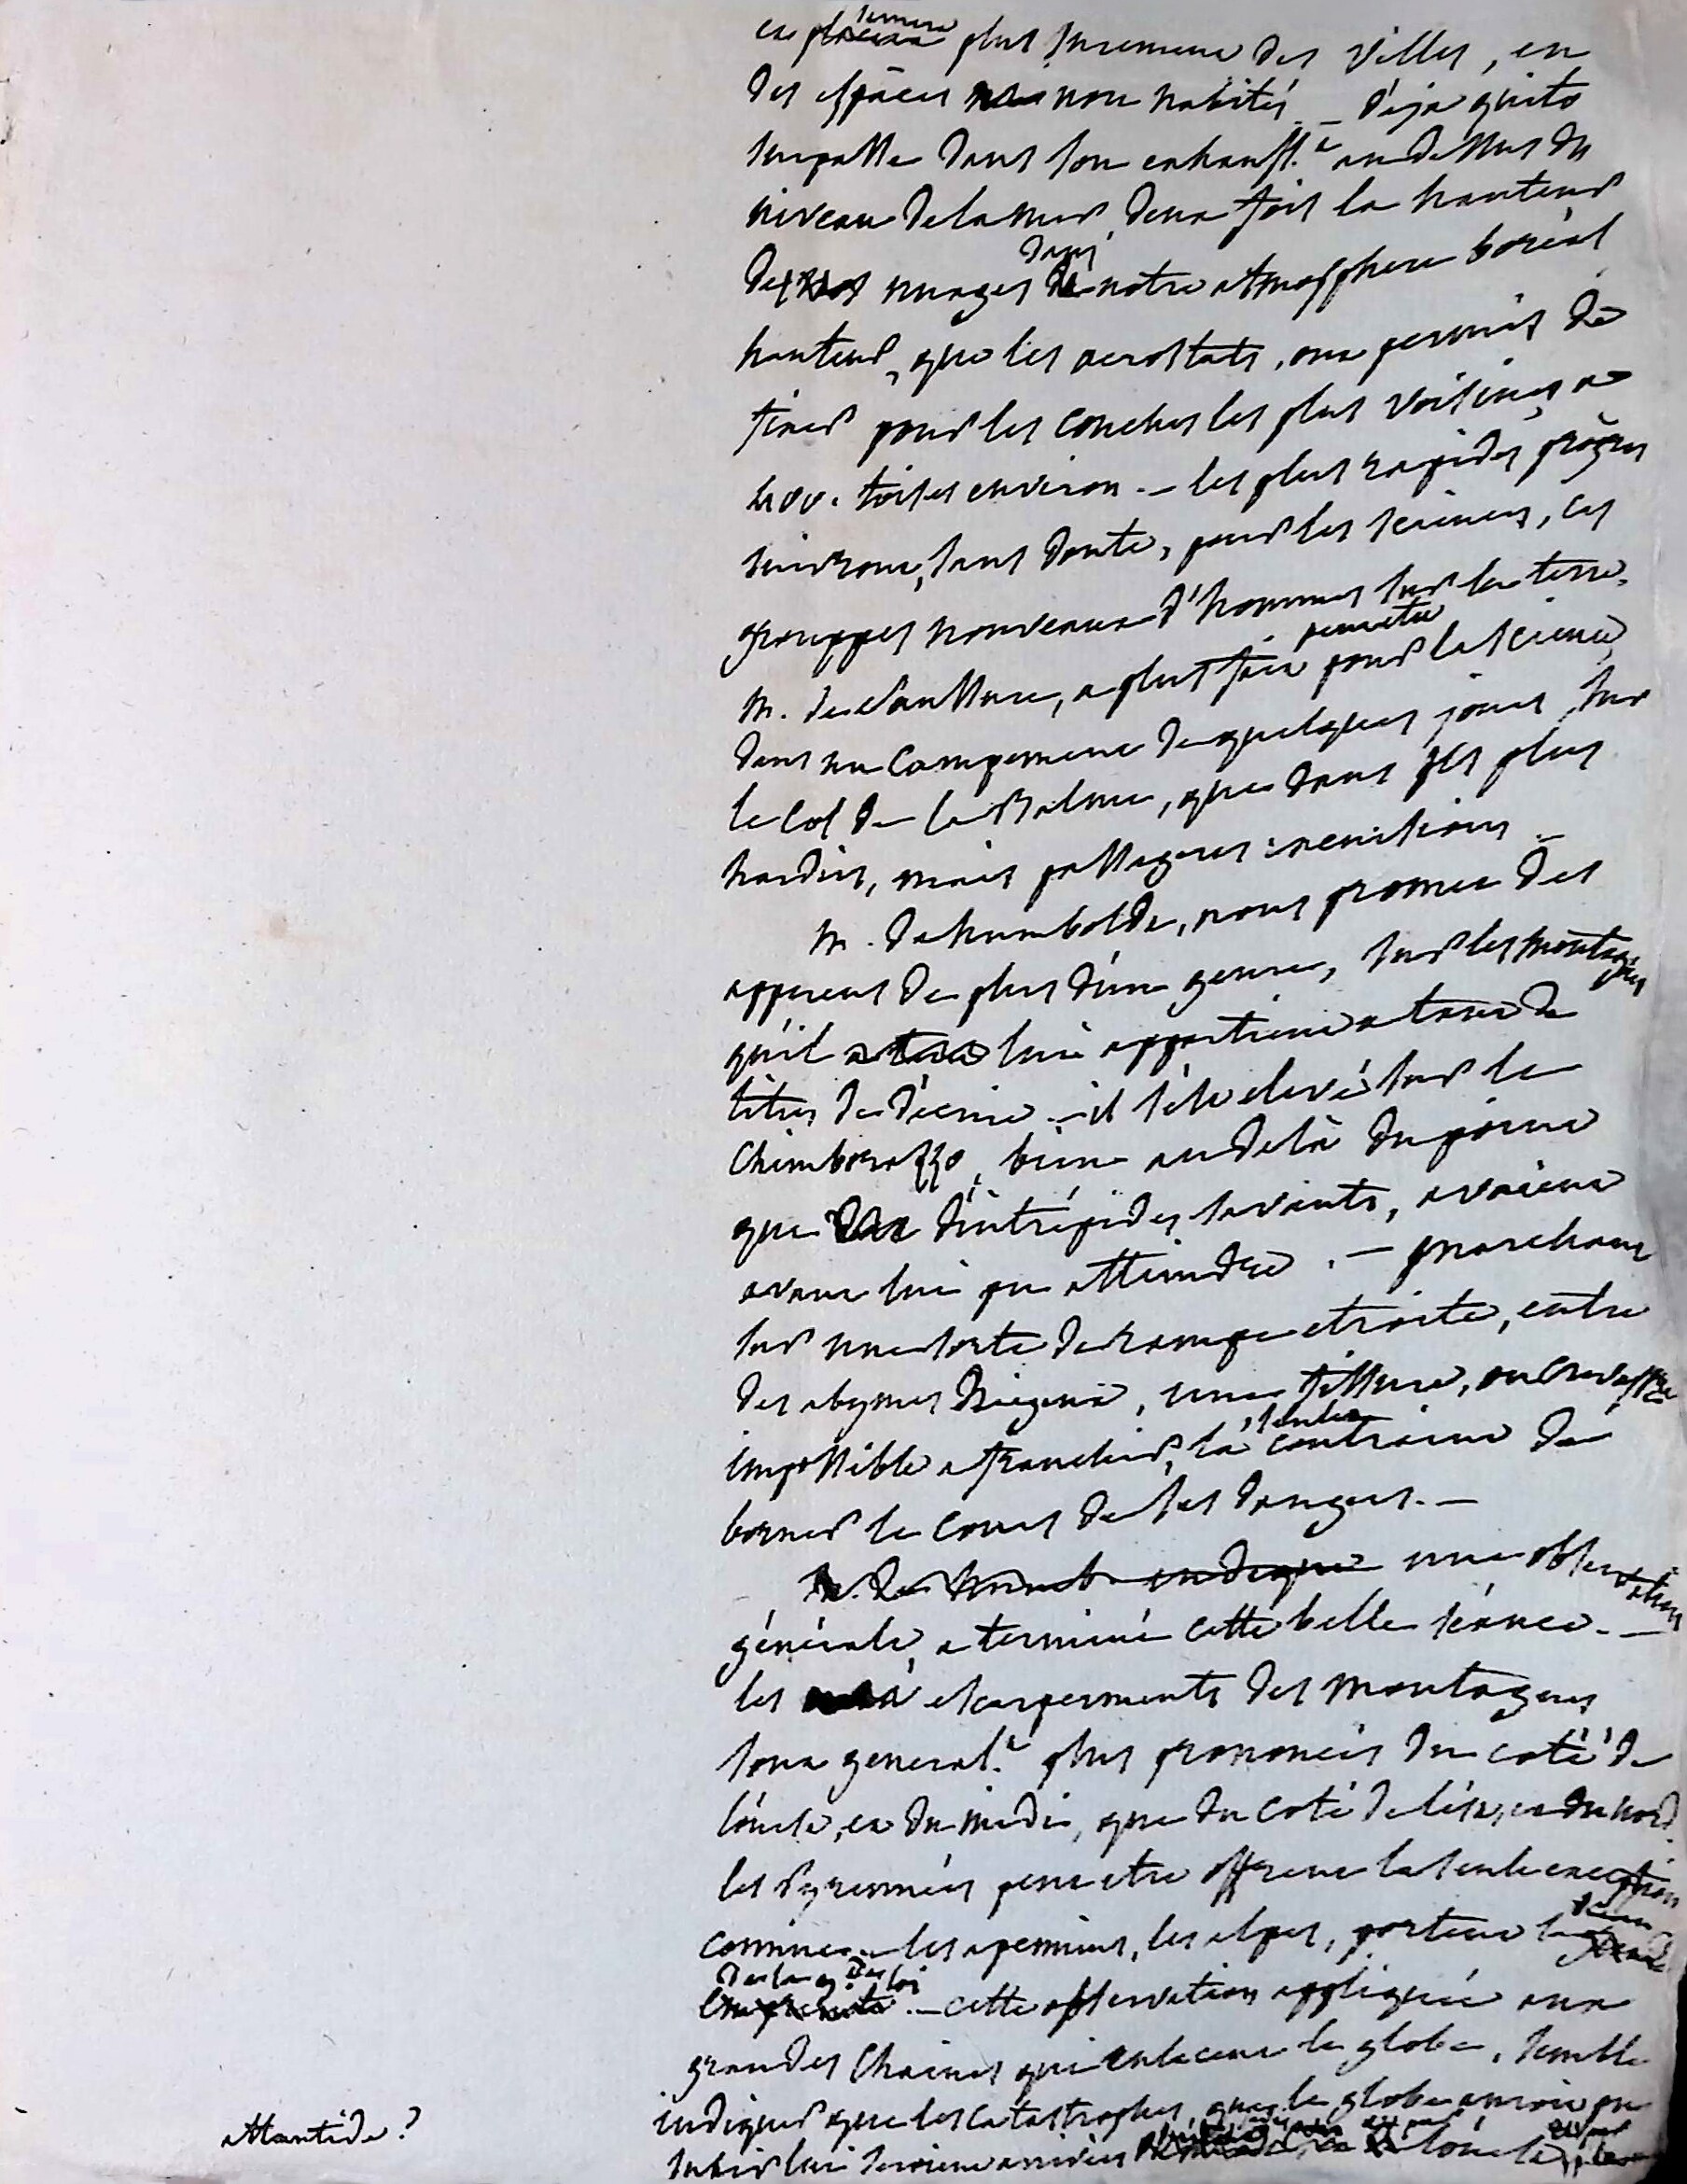 plus surement des villes, en
des espaces non habités _ déja quito
surpasse dans son exhausst. au dessus du
niveau de la mer, deux fois la hauteur
des nuages dans notre atmosphere boréal
hauteur, que les aerostats, ont permis de
fixer pour les couches les plus voisines a
toises environ. _ les plus rapides progres
suivront, sans doute, pour les sciences, ces
grouppes nouveaux d'hommes sur la terre.
M. de Saussure, a plus fait peut etre pour la science,
dans un campement de quelques jours, sur
le Col de la Balme, que dans ses plus
hardies, mais passageres excursions _
M. de humboldt, nous promet des
apperçus de plus d'un genre, sur les montagnes
qu'il lui appartient a tant de
titres de décrire _ il s'est elevé sur le
Chimborasso, bien au delà du point
que d'intrépides savants, avoient
avant lui pu atteindre. _ marchant
sur une sorte de rampe etroite, entre
des abymes, une fissure, ou crevasse
impossible a franchir, l'a seule contraint de
borner le cours de ses dangers. _
M. de Humb. indique une observation
générale, a terminé cette belle séance. _
les escarpements des montagnes
sont general.t plus prononcés du coté de
l'ouest, et du midi, que du coté de l'est, et du nord.
les Pyrennées peut etre offrent la seule exception
les apennins, les alpes, portent
_ cette observation appliquée aux
grandes Chaines qui enlacent le globe, semble
indiquer que les catastrophes, que le globe auroit pu
subir lui seroient arrivées l'ouest
atlantide?